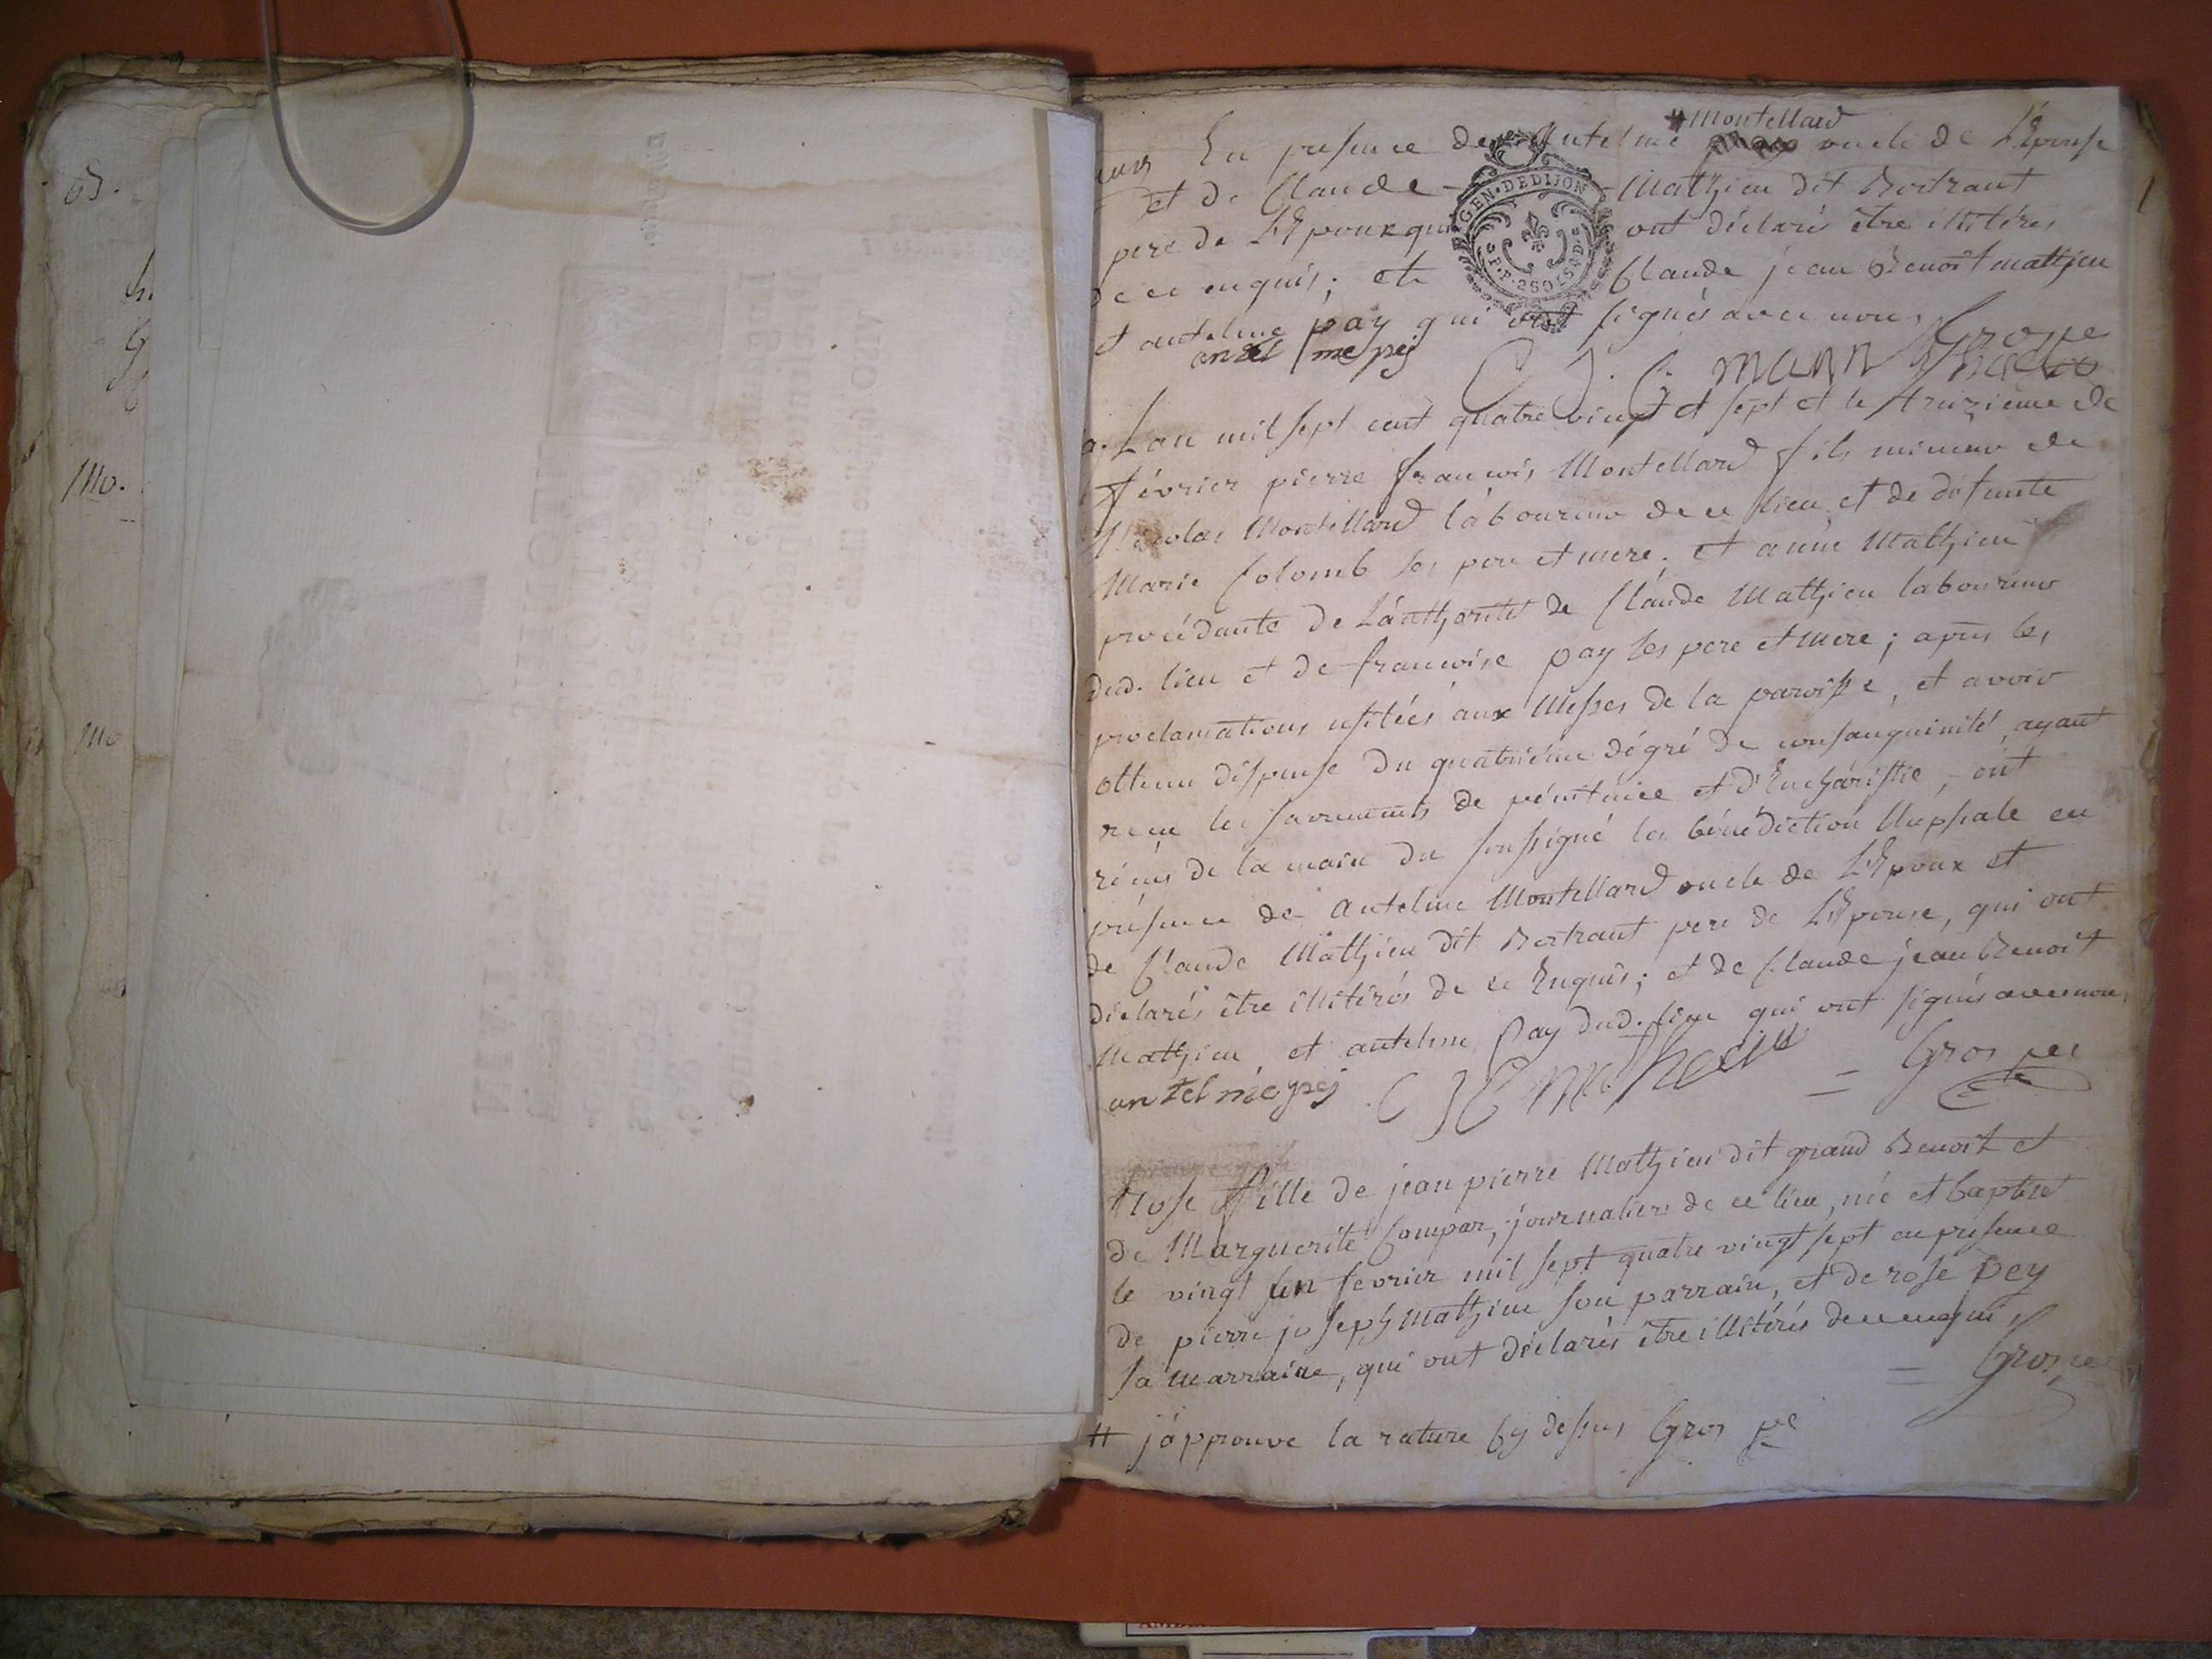 63.
Mo.
Mo
# Montellard
En presence de Antelme oncle de L'Epouse
et de Claude - Mathieu dit Bertrant
pere de L'Epoux qui ont déclarés être illitérés
de ce enquis; et Claude jean Benoît mathieu
et antelme pay qui ont signés avec nous Gros pe
antel me pej C J B
GEN. DEDIJON
L'an mil sept cent quatre vingt et sept et le treizieme de
février pierre francois Montellard fils mineur de
Nicolas Montellard laboureur de ce lieu et de défunte
Marie Colomb ses pere et mere; et anne Mathieu
procédante de L'authorité de Claude Mathieu laboureur
dud. lieu et de francoise pay ses pere et mere; après les
proclamations usitées aux Messes de la paroisse, et avoir
obtenu dispense du quatriéme dégré de consanguinité, ayant
recu les sacrements de pénitence et d'Eucharistie, ont
récus de la main du soussigné la bénédiction Nuptiale en
présence de Antelme Montellard oncle de L'Epoux et
de Claude Mathieu dit Bertrant pere de L'Epouse, qui ont
déclarés être illitérés de ce Enquis; et de Claude jean Benoit
Mathieu et antelme Pay dud. lieu qui ont signés avec nous
antelme pej C J B matheiu = Gros pe
Rose fille de jean pierre Mathieu dit grand Benoit et
de Marguerite Compar, journaliers de ce lieu, née et baptisée
le vingt un fevrier mil sept quatre vingt sept en presence
de pierre joseph Mathieu son parrain, et de rose Pey
sa Marraine, qui ont déclarés être illitérés de ce enquis
= Gros pe
# j'approuve la rature cy dessus Gros pe